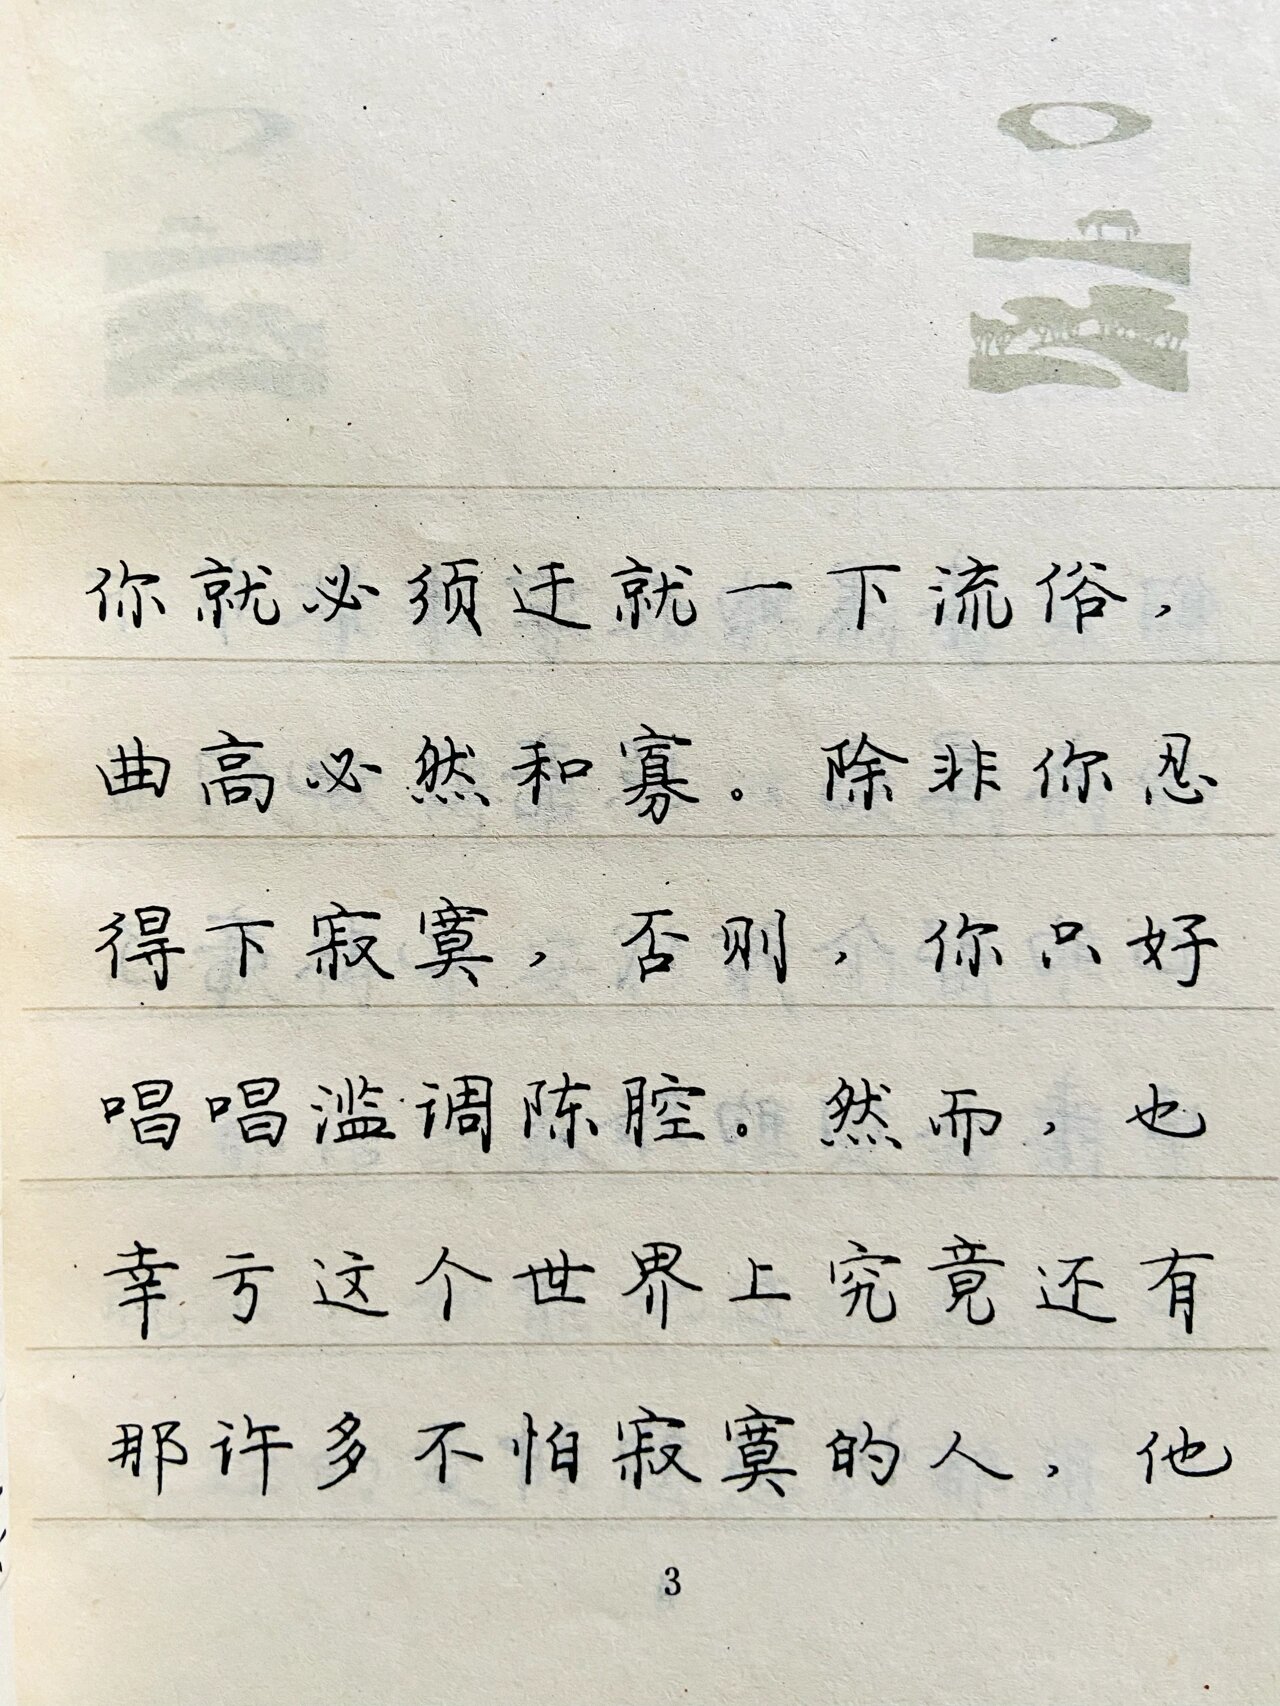 你就必须迁就一下流俗，
曲高必然和寡。除非你忍
得下寂寞，否则，你只好
唱唱滥调陈腔。然而，也
幸亏这个世界上究竟还有
那许多不怕寂寞的人，他
3